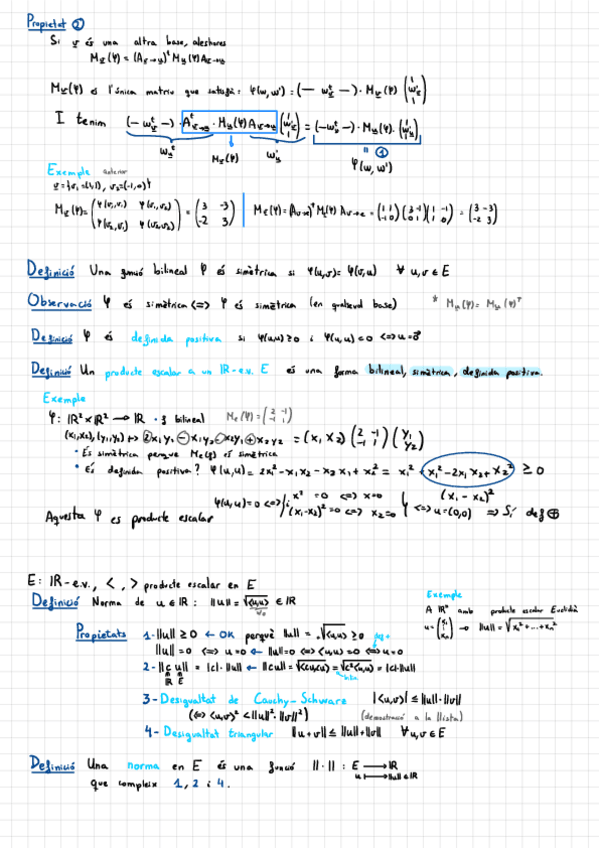 Propietat ②
Si v és una altra base, aleshores
M_v(φ) = (A_v→u)^t M_u(φ) A_v→u
M_v(φ) és l'única matriu que satisfà: φ(w, w') = (— w_v^t —) · M_v(φ) (w'_v)
I tenim (— w_v^t —) · A^t_v→u · M_u(φ) A_v→u (w'_v) = (— w_u^t —) · M_u(φ) · (w'_u)
w_u^t M_v(φ) w'_u " ①
φ(w, w')
Exemple anterior
v = {v₁ = (1,1), v₂ = (-1,0)}
M_v(φ) = (φ(v₁,v₁) φ(v₁,v₂) / φ(v₂,v₁) φ(v₂,v₂)) = (3 -3 / -2 3) | = (1 1 / -1 0) (3 -1 / 0 1) (1 -1 / 1 0) = (3 -3 / -2 3)
Definició Una funció bilineal φ és simètrica si φ(u,v) = φ(v,u) ∀ u,v ∈ E
Observació φ és simètrica <=> φ és simètrica (en qualsevol base) * M_u(φ) = M_u(φ)^T
Definició φ és definida positiva si φ(u,u) ≥ 0 i φ(u,u) = 0 <=> u = 0
Definició Un producte escalar a un IR-e.v. E és una forma bilineal, simètrica, definida positiva.
Exemple
φ: IR² × IR² → IR · és bilineal M_e(φ) = (2 -1 / -1 1)
(x₁,x₂), (y₁,y₂) ↦ 2x₁y₁ - x₁y₂ - x₂y₁ + x₂y₂ = (x₁ x₂) (2 -1 / -1 1) (y₁ / y₂)
• És simètrica perquè M_e(φ) és simètrica
• És definida positiva? φ(u,u) = 2x₁² - x₁x₂ - x₂x₁ + x₂² = x₁² + x₁² - 2x₁x₂ + x₂² ≥ 0
(x₁ - x₂)²
φ(u,u) = 0 <=> { x² = 0 <=> x = 0 / (x₁-x₂)² = 0 <=> x₂ = 0 } <=> u = (0,0) => Sí def ⊕
Aquesta φ es producte escalar
E: IR-e.v., < , > producte escalar en E
Definició Norma de u ∈ IR: ||u|| = √<u,u> ∈ IR
≥0
Exemple
A IRⁿ amb producte escalar Euclidià
u = (x₁ / : / xₙ) → ||u|| = √x₁² + ... + xₙ²
Propietats 1- ||u|| ≥ 0 ← OK perquè ||u|| = √<u,u> ≥ 0
||u|| = 0 <=> u = 0 ← ||u|| = 0 <=> <u,u> = 0 <=> u = 0
2- ||c u|| = |c| · ||u|| ← ||cu|| = √<cu,cu> = √c²<u,u> = |c| · ||u||
IR E
3- Desigualtat de Cauchy-Schwarz |<u,v>| ≤ ||u|| · ||v||
(<=> <u,v>² < ||u||² · ||v||²) (demostració a la llista)
4- Desigualtat triangular ||u+v|| ≤ ||u|| + ||v|| ∀ u,v ∈ E
Definició Una norma en E és una funció || · || : E → IR
u ↦ ||u|| ∈ IR
que compleix 1, 2 i 4.